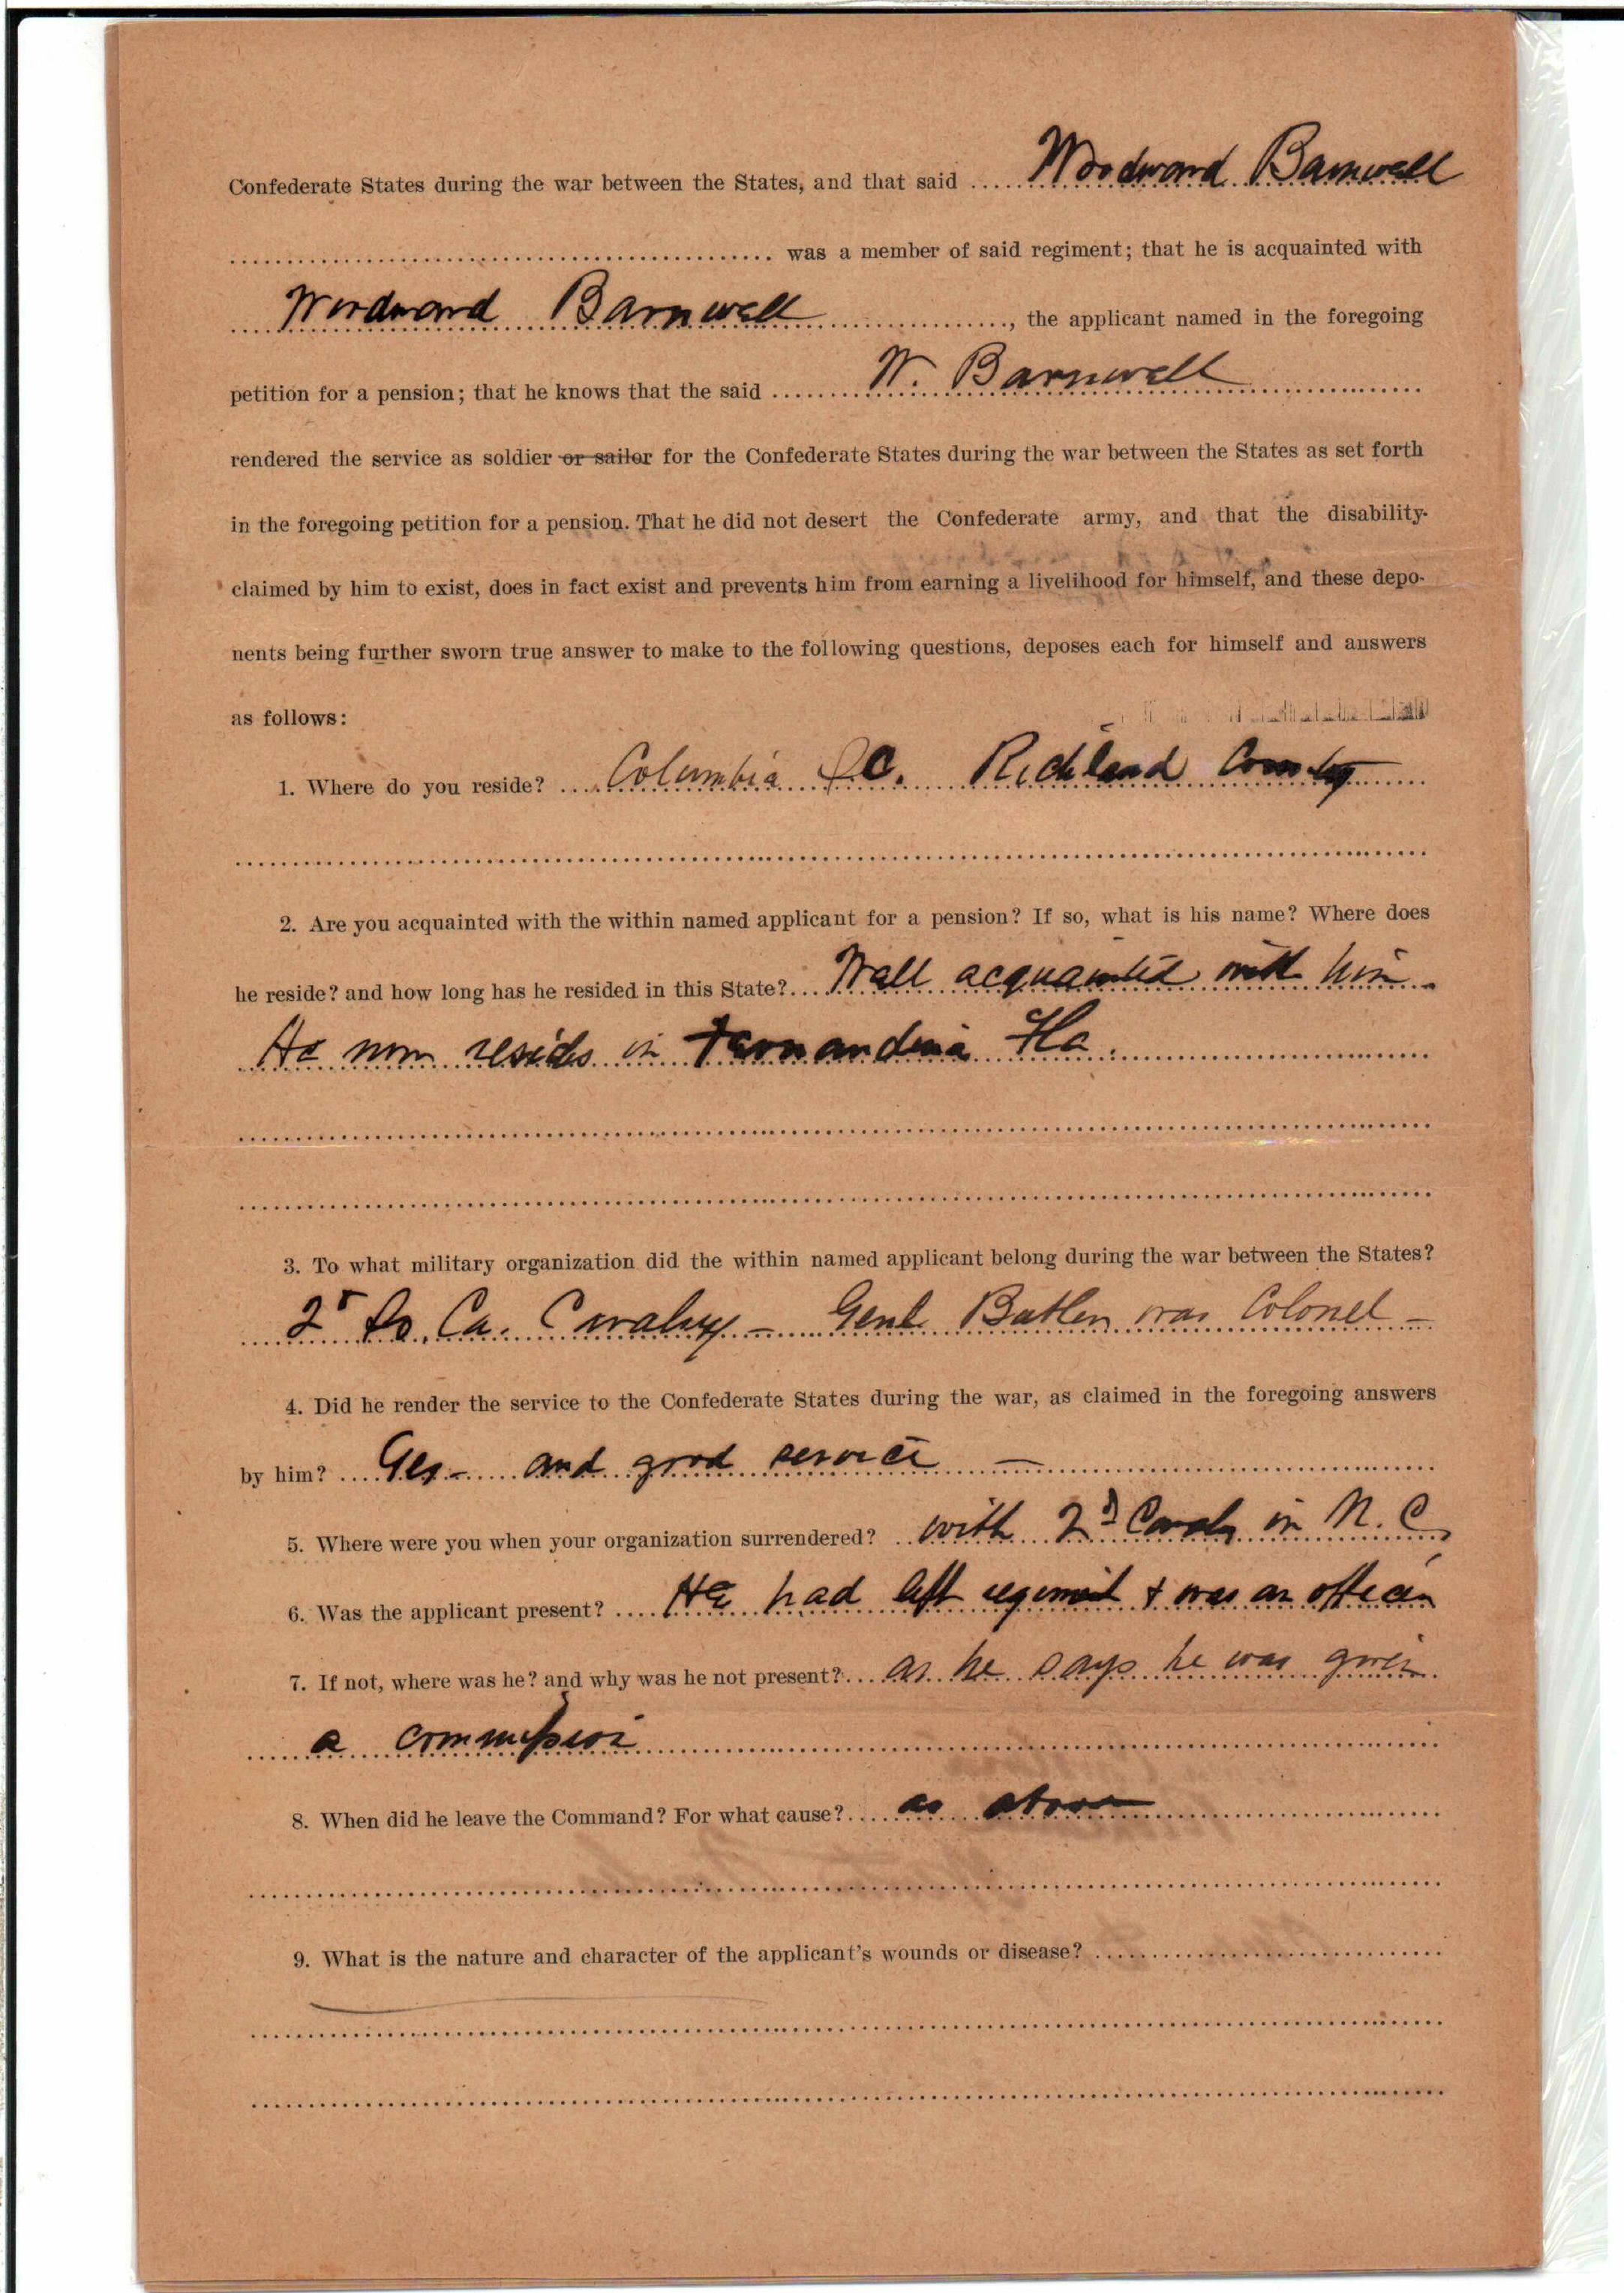 Confederate States during the war between the States, and that said ..... Woodward Barnwell
..... was a member of said regiment; that he is acquainted with
Woodward Barnwell ....., the applicant named in the foregoing
petition for a pension; that he knows that the said ..... W. Barnwell
rendered the service as soldier or sailor for the Confederate States during the war between the States as set forth
in the foregoing petition for a pension. That he did not desert the Confederate army, and that the disability
claimed by him to exist, does in fact exist and prevents him from earning a livelihood for himself, and these depo-
nents being further sworn true answer to make to the following questions, deposes each for himself and answers
as follows:
1. Where do you reside? ..... Columbia S C. Richland County
2. Are you acquainted with the within named applicant for a pension? If so, what is his name? Where does
he reside? and how long has he resided in this State? ... Well acquainted with him.
He now resides in Fernandina Fla.
3. To what military organization did the within named applicant belong during the war between the States?
2d So. Ca. Cavalry — Genl Butler was Colonel —
4. Did he render the service to the Confederate States during the war, as claimed in the foregoing answers
by him? .... Yes — and good service —
5. Where were you when your organization surrendered? .. with 2d Cavaly in N. C.
6. Was the applicant present? .... He had left regiment & was an officer
7. If not, where was he? and why was he not present? ... as he says he was given
a commission
8. When did he leave the Command? For what cause? .... as above
9. What is the nature and character of the applicant's wounds or disease? .....